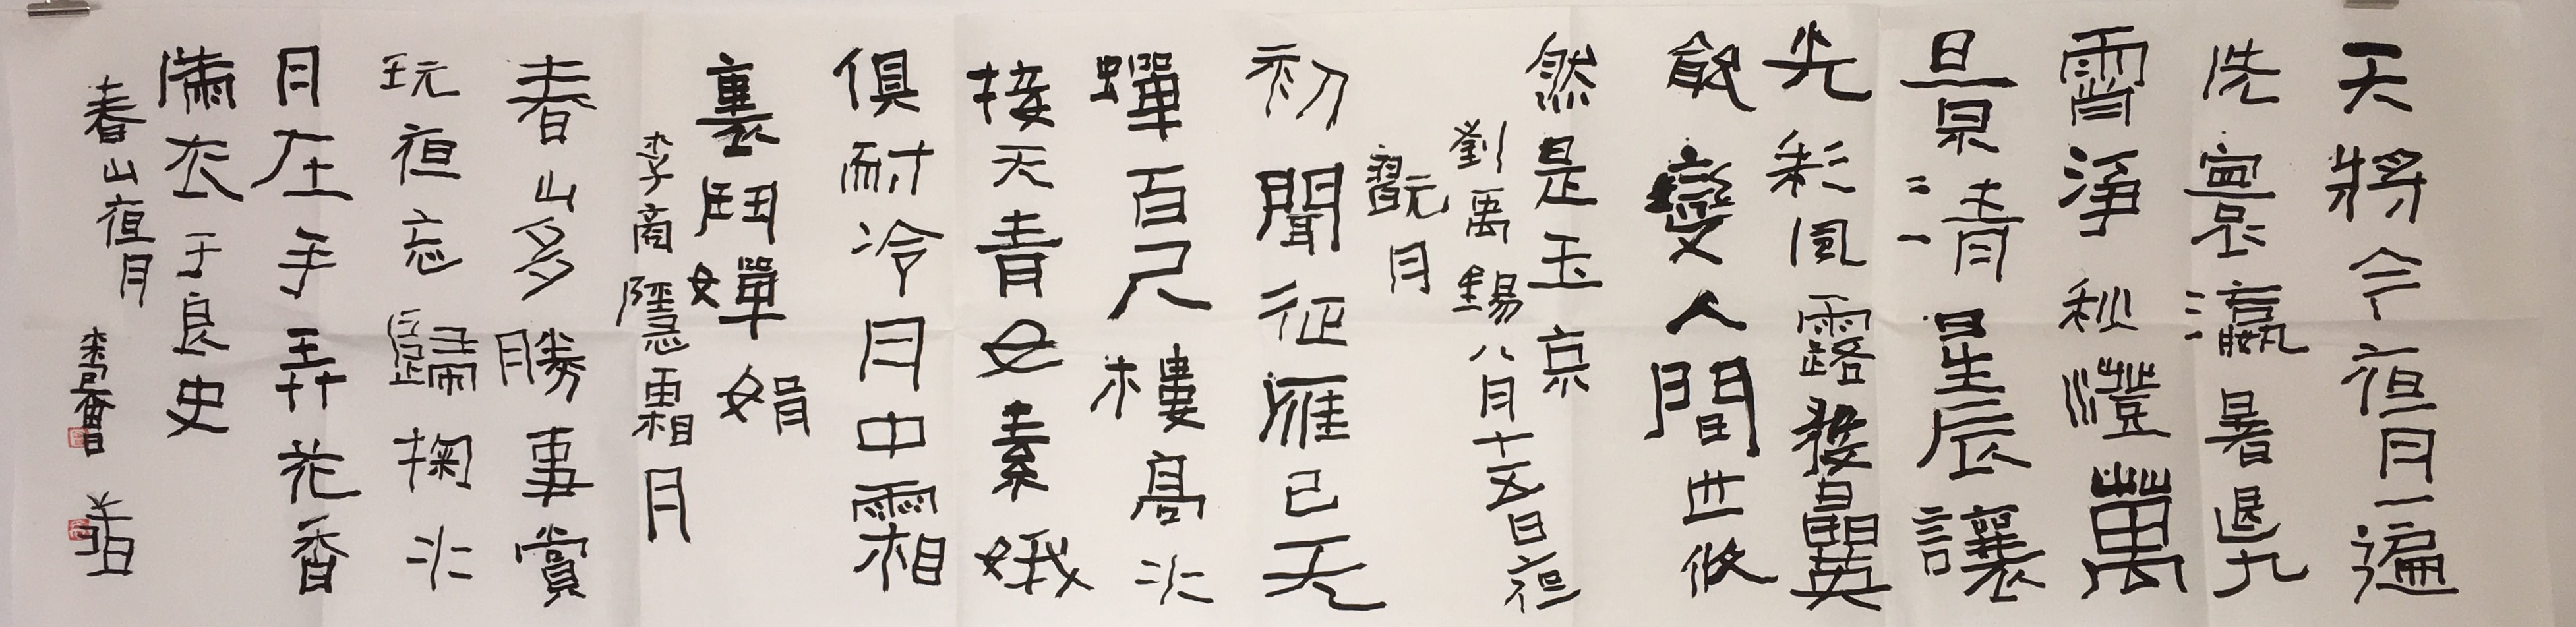 天將今夜月一遍
洗寰瀛暑退九
霄淨秋澄萬
景清星辰讓
光彩風露發晶英
能變人間世攸
然是玉京
劉禹錫八月十五日夜
翫月
初聞征雁已无
蟬百尺樓高水
接天青女素娥
俱耐冷月中霜
裏鬥嬋娟
李商隱霜月
春山多勝事賞
玩夜忘歸掬水
月在手弄花香
滿衣于良史
春山夜月